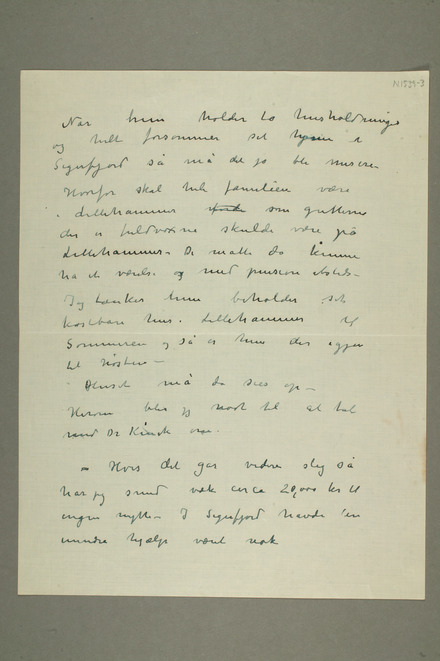 N1539-3
Når hun holder to husholdninger
og helt forsømmer sit hjem i
Signefjord så må det jo bli misere
Hvorfor skal hele familien være
i Lillehammer som guttene
der er fuldvoxne skulde være på
Lillehammer – De måtte da kunne
ha et værelse og med pension etsteds –
Jeg tænker hun beholder sit
kostbare hus i Lillehammer til
Sommeren og så er hun der igjen
til Høsten –
Huset må da sies op –
Herom blir jeg nødt til at tale
med Dr Kinck om.
– Hvis det går videre slig så
har jeg smidt væk circa 20,000 kr til
ingen nytte – I Signefjord havde en
mindre hjælp været nok